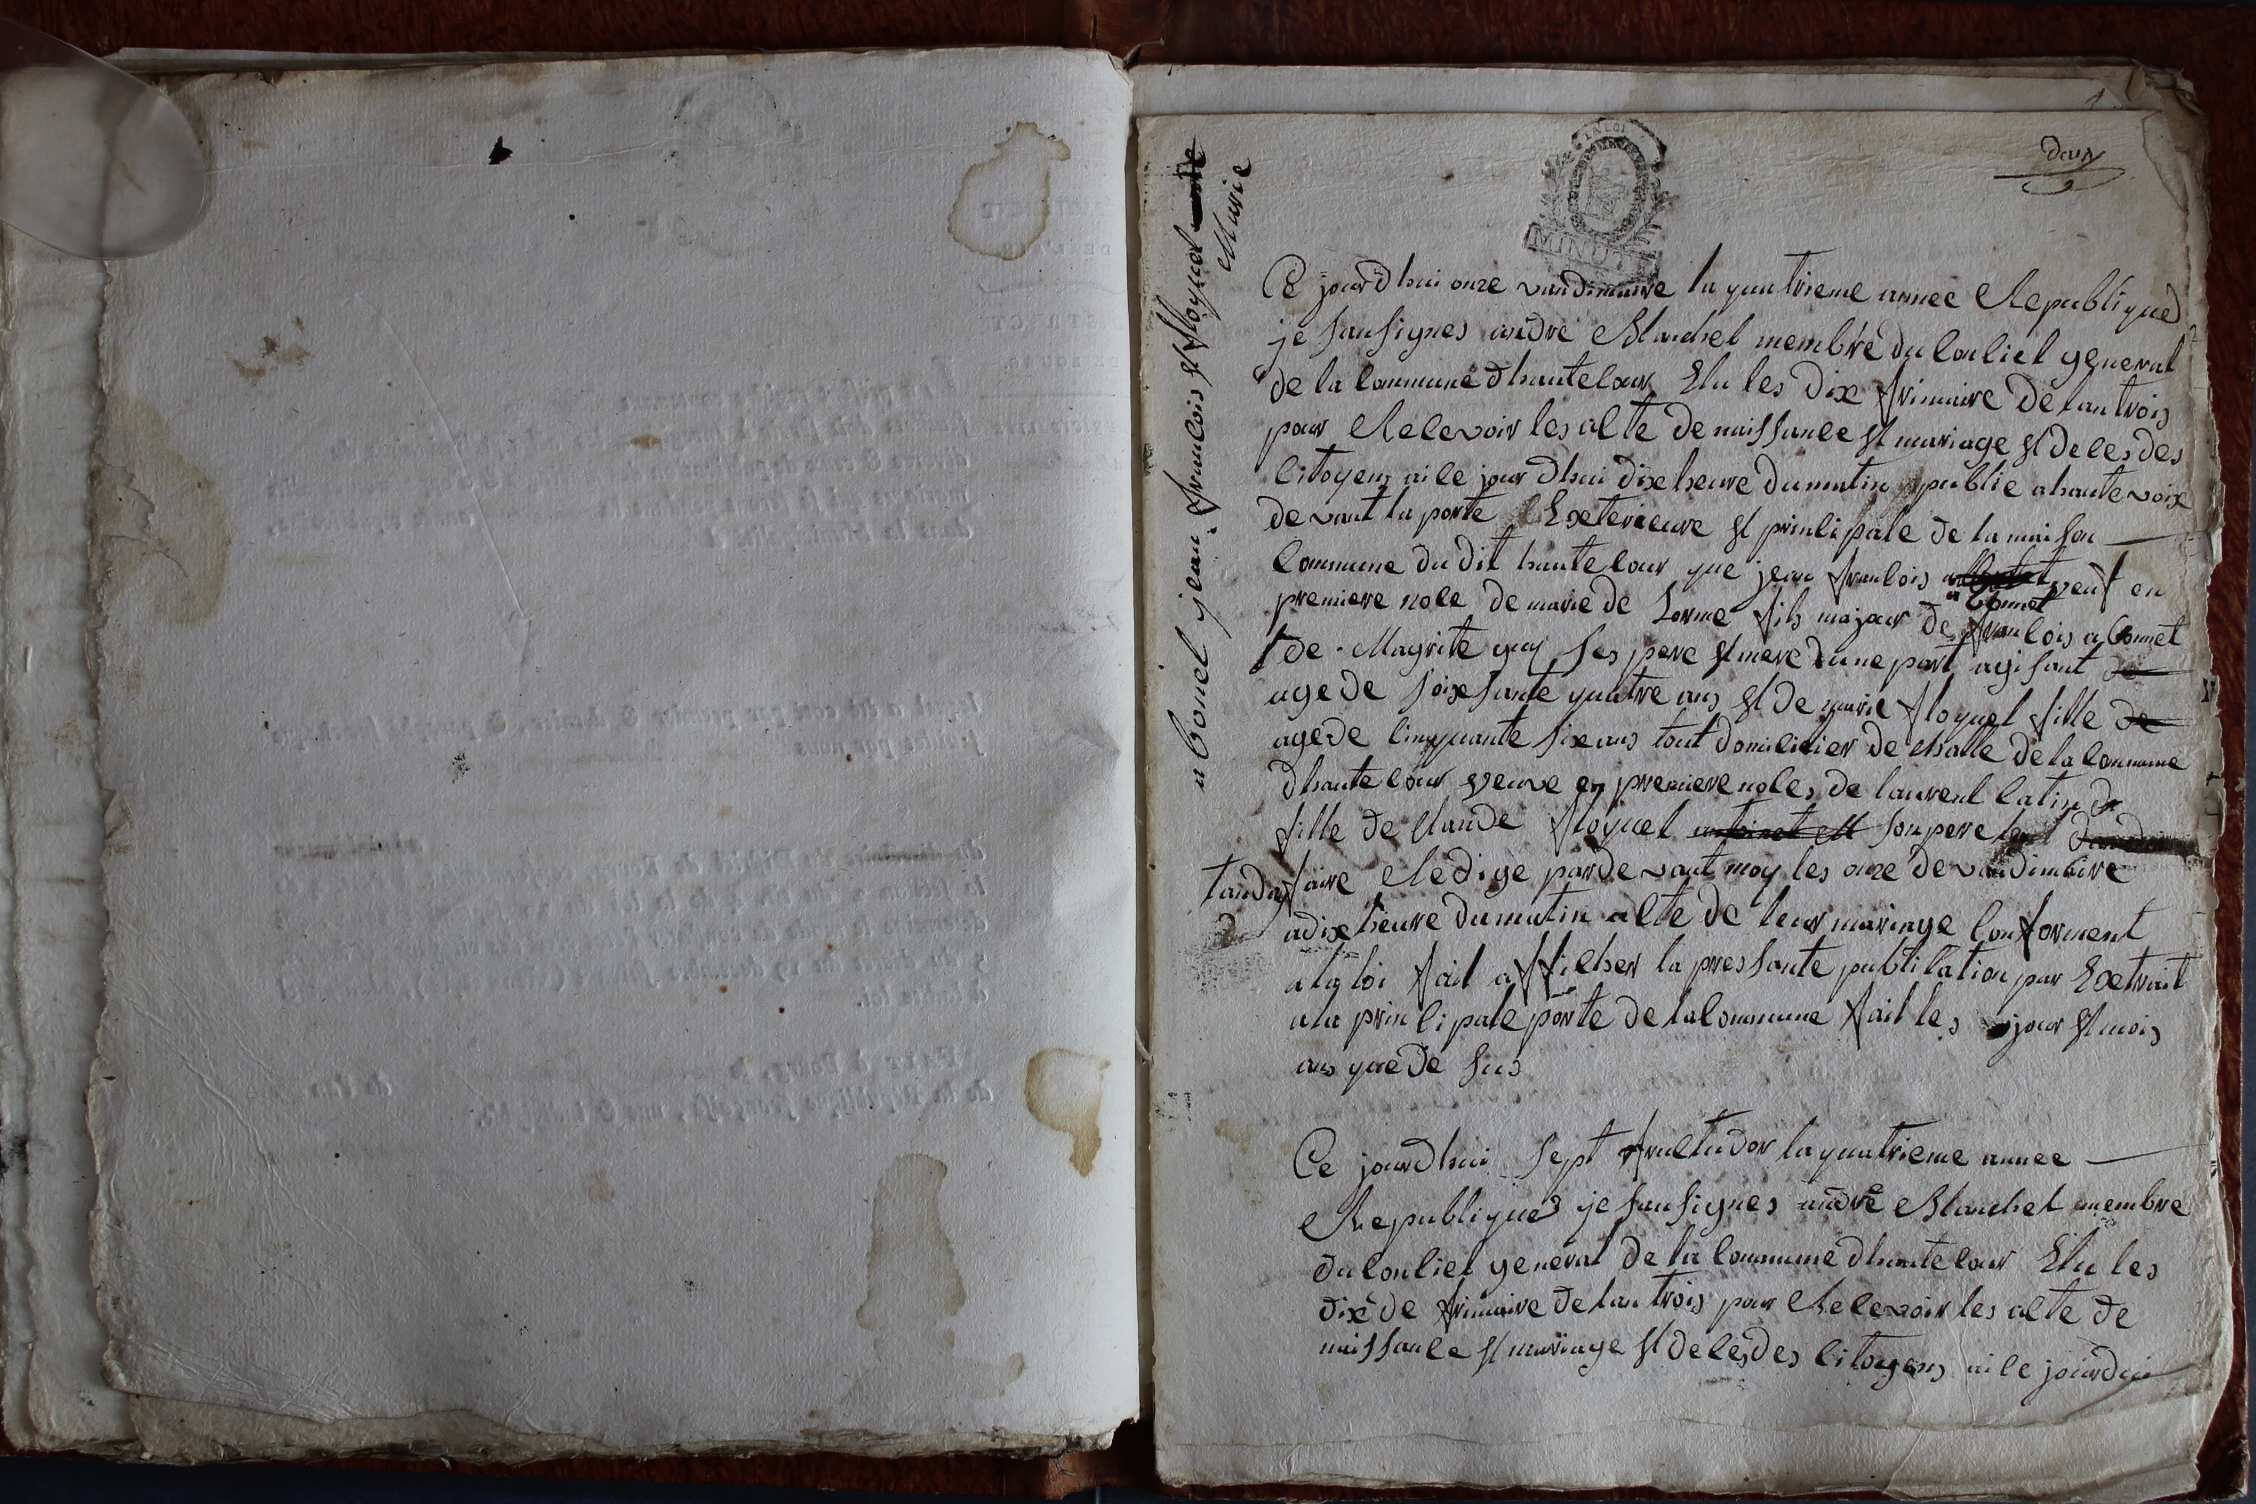 deux
LA LOI
MINUTE
abonel jean francois et floquel
Marie
Ce jourdhui onze vandimaire la quatrieme annee Republique
je sausignes andré Blanchel membré du Conciel general
de la Commune dhautecour Elu les dix frimaire de lan trois
pour Recevoir les acte de naissance et mariage et deces des
Citoyens ai ce jour dhui dix heure du matin publie a haute voix
devant la porte Exterieure et principale de la maison
Commune du dit hautecour que jean francois abonnet veuf en
premiere noce de marie de Lorme fils majour de francois abonnet
et de Magrite guy ses pere et mere dune part agisant
age de soixsante quatre ans et de marie floquel fille de
agede Cinquante six ans tout domicilier de challe de la Commune
dhautecour veuve en premiere noces de laurent Catin
fille de Claude floquel son pere
faire Redige par devant moy les onze de vandimaire
a dix heure du matin acte de leur mariage Conforment
a la loi fail afficher la pressante publication par Extrait
a la principale porte de la Commune fail les jour et mois
ans que de sus
Ce jourdhui Sept fructudor la quatrieme annee
Republique je sausignes andré Blanchel membre
du Conciel general de la Commune dhautecour Elu les
dix de frimaire de lan trois pour Recevoir les acte de
naissance et mariage et deces des Citoyens ai ce jourdui